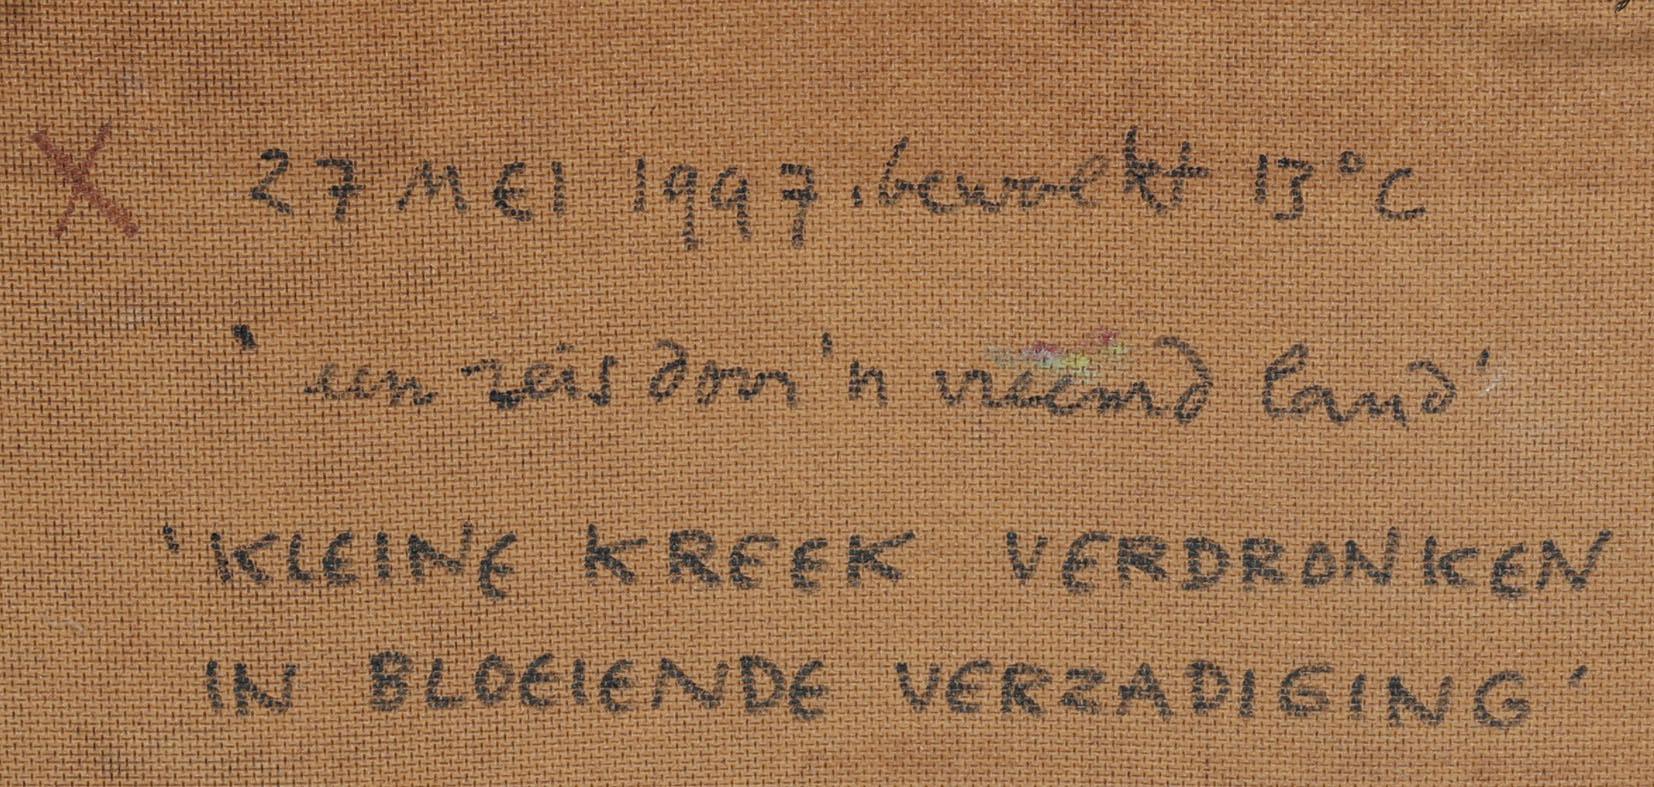 X 27 MEI 1997. bewolkt 13°C
'een reis door 'n vreemd land'
'KLEINE KREEK VERDRONKEN
IN BLOEIENDE VERZADIGING'